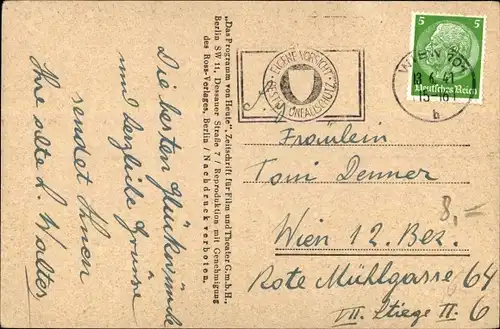 Die besten Glückwünsche
und herzliche Grüsse
sendet Ihnen
Ihre alte L. Walter
„Das Programm von Heute“, Zeitschrift für Film und Theater G.m.b.H.,
Berlin SW 11, Dessauer Straße 7 / Reproduktion mit Genehmigung
des Ross-Verlages, Berlin / Nachdruck verboten.
EIGENE VORSICHT
BESTER UNFALLSCHUTZ
5 5
Deutsches Reich
WIEN
13.6.41
b
Fräulein
Toni Denner
8,-
Wien 12. Bez.
Rote Mühlgasse 64
VII. Stiege II. 6